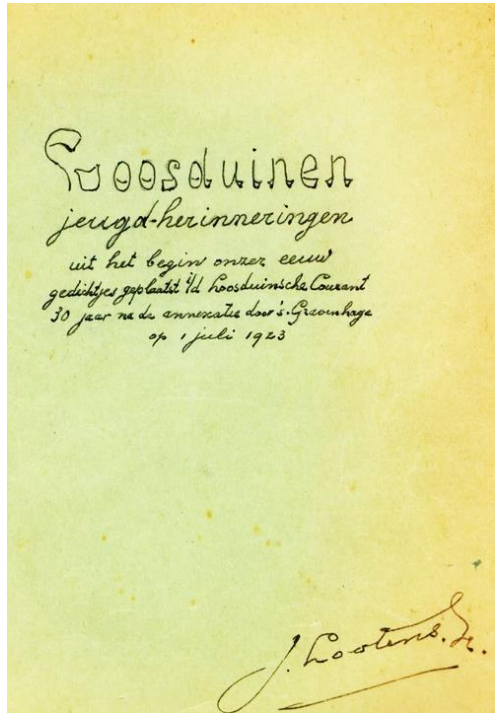 Loosduinen
jeugd-herinneringen
uit het begin onzer eeuw
gedichtjes geplaatst i/d Loosduinsche Courant
30 jaar na de annexatie door 's-Gravenhage
op 1 juli 1923
J. Lootens. Jr.